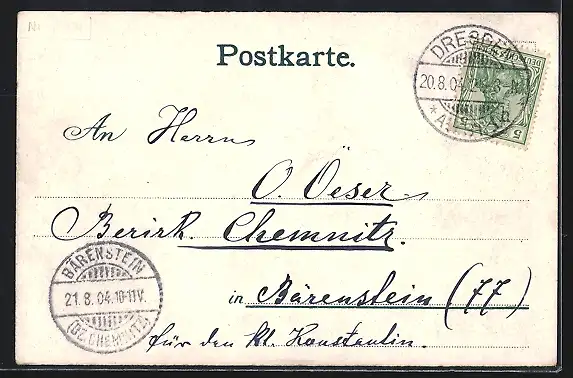 Postkarte.
DRESDEN
20.8.04. 
* ALTST.
DEUTSCHES REICH
5
An Herrn
O. Oeser
Bezirk Chemnitz.
BÄRENSTEIN
21.8.04.10-11V.
(BZ. CHEMNITZ)
in Bärenstein (77)
für den kl. Konstantin.